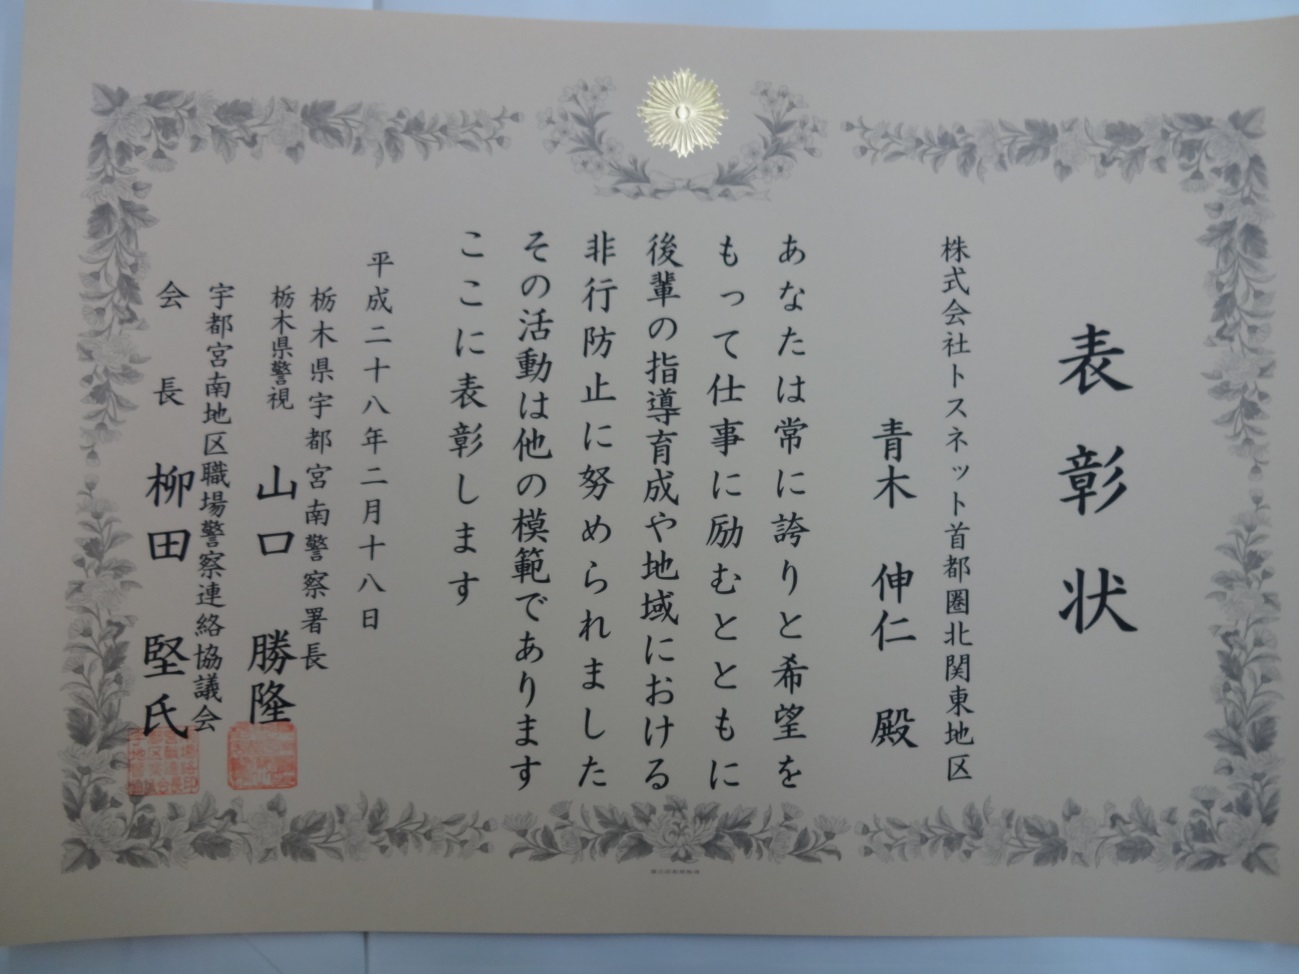 表彰状
株式会社トスネット首都圏北関東地区
青木 伸仁 殿
あなたは常に誇りと希望を
もって仕事に励むとともに
後輩の指導育成や地域における
非行防止に努められました
その活動は他の模範であります
ここに表彰します
平成二十八年二月十八日
栃木県宇都宮南警察署長
栃木県警視 山口 勝隆
宇都宮南地区職場警察連絡協議会
会長 柳田 堅氏